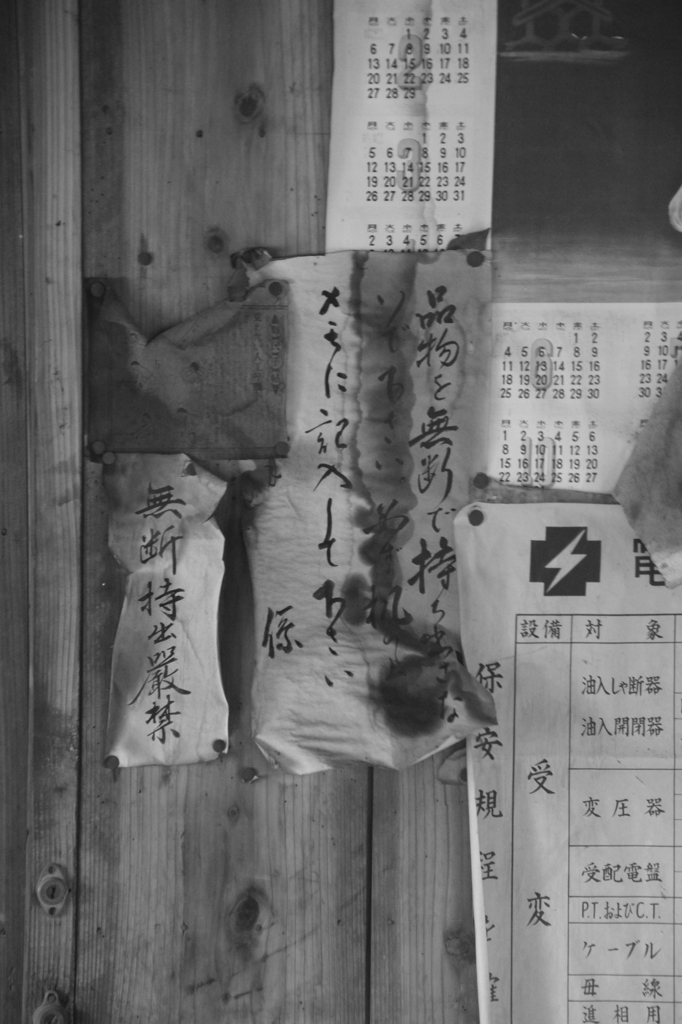 日 火 水 木 金 土
1 2 3 4
6 7 8 9 10 11
13 14 15 16 17 18
20 21 22 23 24 25
27 28 29
1 2 3
5 6 7 8 9 10
12 13 14 15 16 17
19 20 21 22 23 24
26 27 28 29 30 31
2 3 4 5 6
1 2
4 5 6 7 8 9
11 12 13 14 15 16
18 19 20 21 22 23
25 26 27 28 29 30
2 3
9 10
16 17
23 24
30 3
1 2 3 4 5 6
8 9 10 11 12 13
15 16 17 18 19 20
22 23 24 25 26 27
品物を無断で持ち出さな
いで下さい
メモに記入して下さい
係
無断持出厳禁
電
保安規程を
設備 対象
受変
油入しゃ断器
油入開閉器
変圧器
受配電盤
P.T.およびC.T.
ケーブル
母線
進相用